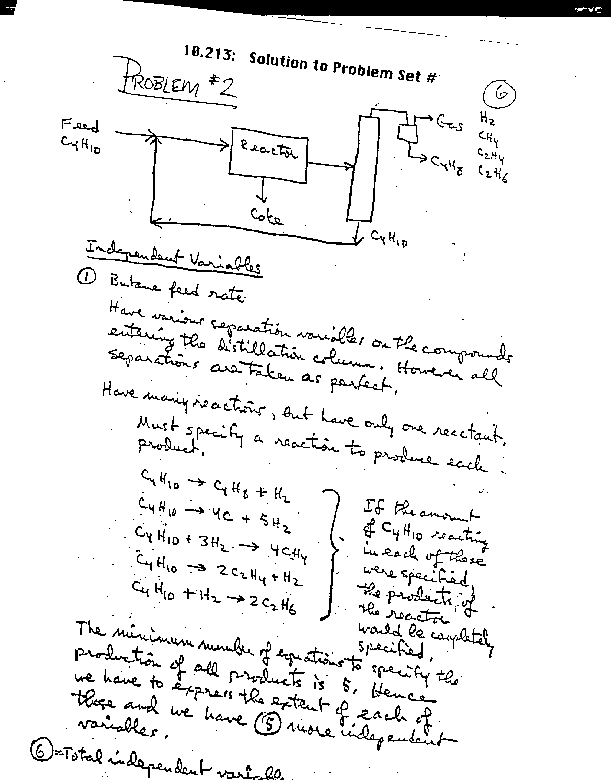 10.213: Solution to Problem Set #
PROBLEM #2
6
Feed
C4H10
Reactor
Coke
Gas
H2
CH4
C2H4
C2H6
C4H8
C4H10
Independent Variables
① Butane feed rate
Have various separation variables on the compounds
entering the distillation column. However all
separations are taken as perfect.
Have many reactions, but have only one reactant.
Must specify a reaction to produce each
product.
C4H10 → C4H8 + H2
C4H10 → 4C + 5H2
C4H10 + 3H2 → 4CH4
C4H10 → 2C2H4 + H2
C4H10 + H2 → 2C2H6
If the amount
of C4H10 reacting
in each of these
were specified,
the products of
the reactor
would be completely
specified.
The minimum number of equations to specify the
production of all products is 5. Hence
we have to express the extent of each of
those and we have ⑤ more independent
variables.
⑥ = Total independent variable